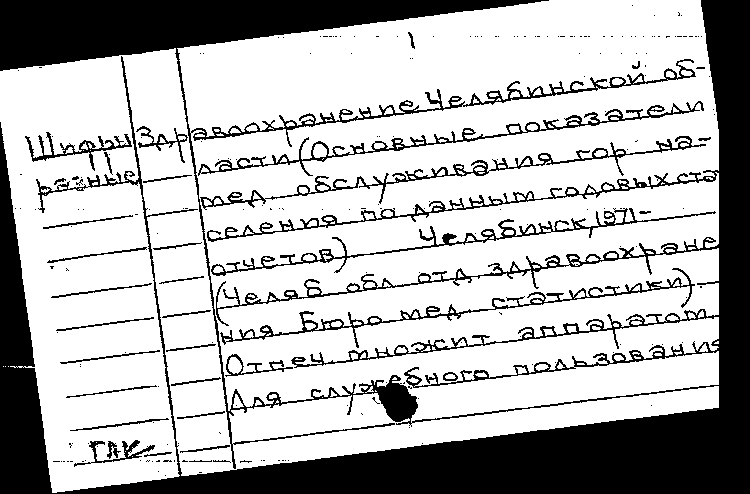 Шифры Здравоохранение Челябинской об-
разные ласти (Основные показатели
мед. обслуживания гор. на-
селения по данным годовых ста
отчетов) Челябинск, 1971-
(Челяб обл отд. здравоохране
ния. Бюро мед. статистики).
Отпеч. множит аппаратом.
Для служебного пользования
ГАК